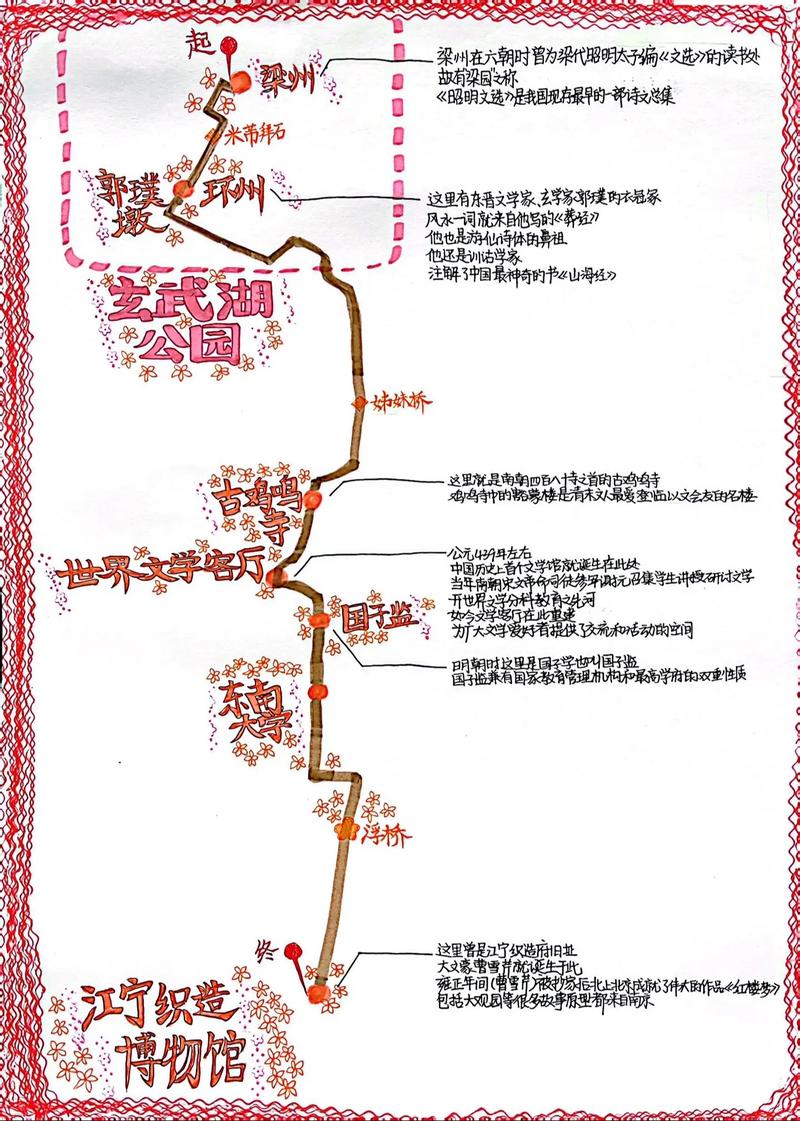 起
梁州
梁州在六朝时曾为梁代昭明太子编《文选》的读书处
故有梁园"之称
《昭明文选》是我国现存最早的一部诗文总集
米芾拜石
郭璞墩
环州
这里有东晋文学家、玄学家郭璞的衣冠冢
风水一词就来自他写的《葬经》
他也是游仙诗体的鼻祖
他还是训诂学家
注解了中国最神奇的书《山海经》
玄武湖
公园
姊妹桥
古鸡鸣
寺
这里就是南朝四百八十寺之首的古鸡鸣寺
鸡鸣寺中的豁蒙楼是清末文人最爱登临以文会友的名楼
世界文学客厅
公元439年左右
中国历史上首个文学馆就诞生在此处
当年南朝宋文帝命司徒参军谢元召集学生讲授研讨文学
开世界文学分科教育之先河
如今文学客厅在此重建
为广大文学爱好者提供了交流和活动的空间
国子监
明朝时这里是国子学也叫国子监
国子监兼有国家教育管理机构和最高学府的双重性质
东南
大学
浮桥
终
江宁织造
博物馆
这里曾是江宁织造府旧址
大文豪曹雪芹就诞生于此
雍正年间(曹雪芹)被抄家后北上北京成就了伟大的作品《红楼梦》
包括大观园等很多故事原型都来自南京